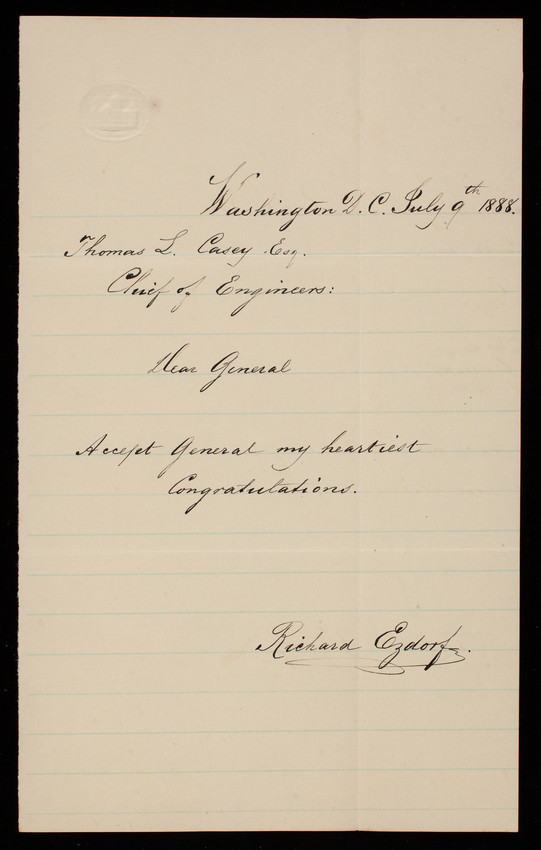 Washington D. C. July 9th 1888.
Thomas L. Casey Esq.
Chief of Engineers:
Dear General
Accept General my heartiest
Congratulations.
Richard Ezdorf.